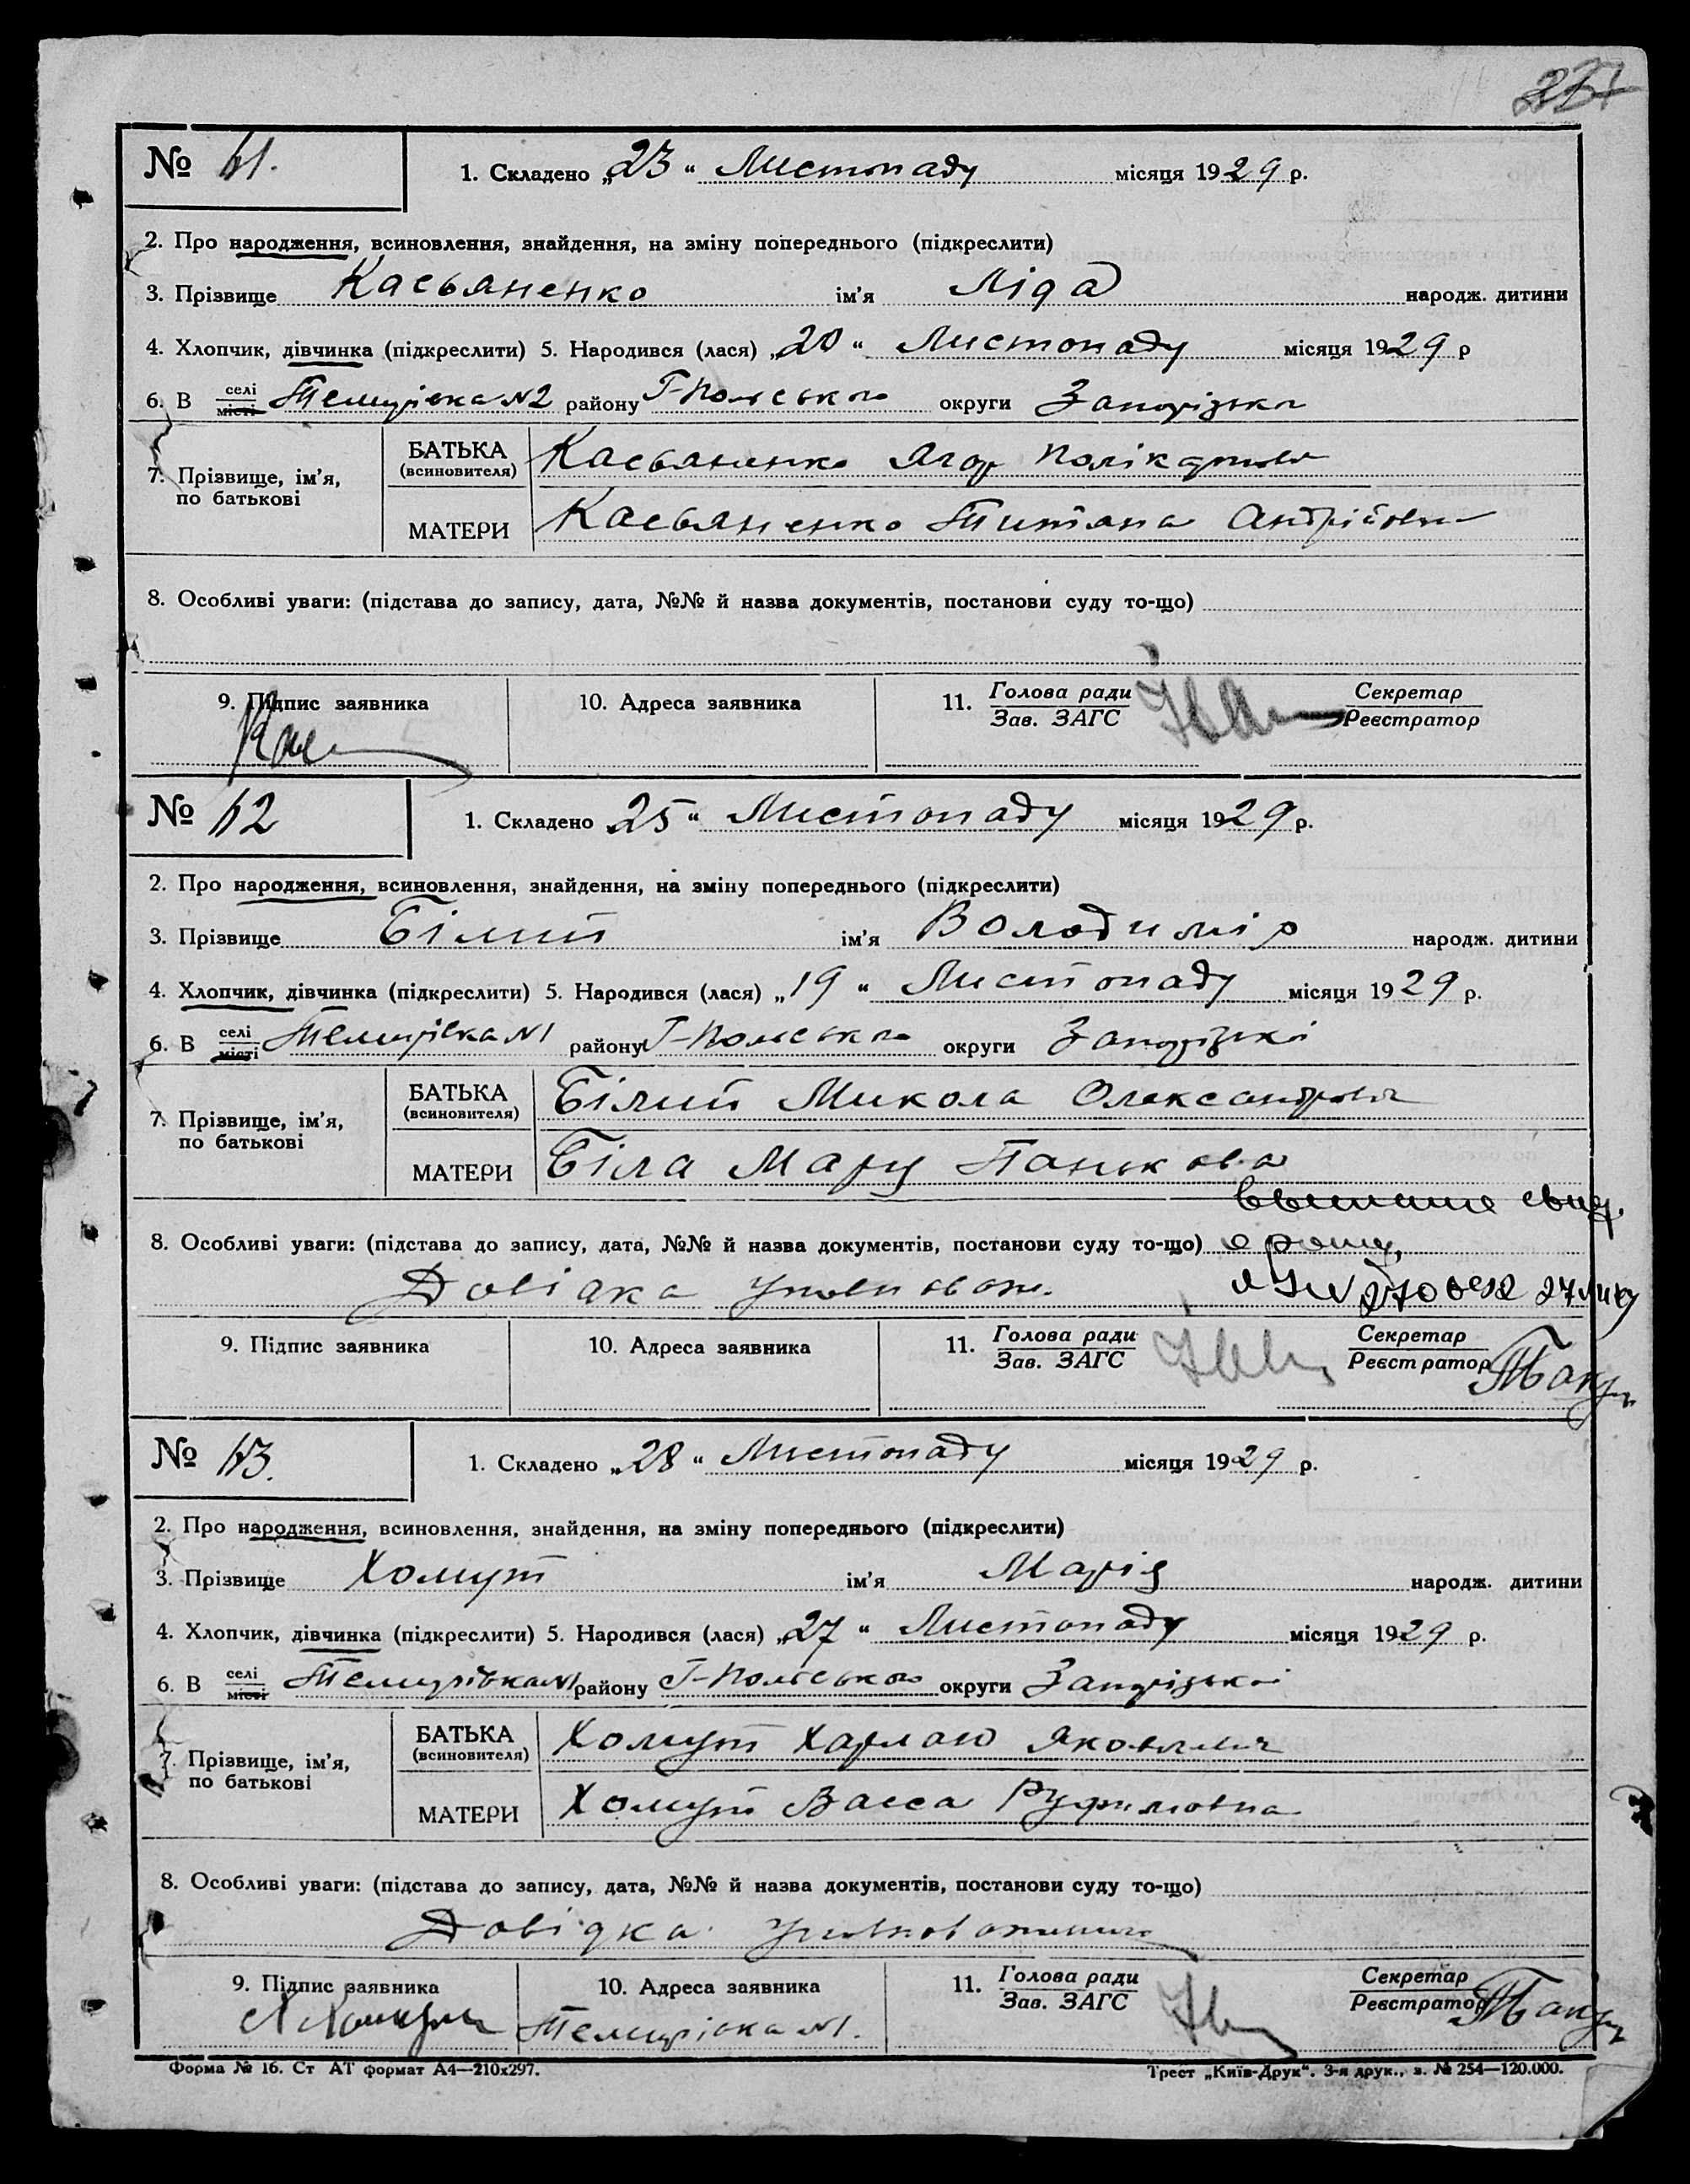 № 61.
1. Складено „23“ Листопаду місяця 1929 р.
2. Про народження, всиновлення, знайдення, на зміну попереднього (підкреслити)
3. Прізвище Касьяненко ім’я Ліда народж. дитини
4. Хлопчик, дівчинка (підкреслити) 5. Народився (лася) „20“ Листопаду місяця 1929 р
6. В селі місті Темирівка №2 району Г-Польського округи Запорізько
7. Прізвище, ім’я, по батькові
БАТЬКА (всиновителя) Касьяненко Ягор
МАТЕРИ Касьяненко Титяна Андрійовна
8. Особливі уваги: (підстава до запису, дата, №№ й назва документів, постанови суду то-що)
9. Підпис заявника 10. Адреса заявника 11. Голова ради Зав. ЗАГС Секретар Реєстратор
№ 62
1. Складено 25“ Листопаду місяця 1929 р.
2. Про народження, всиновлення, знайдення, на зміну попереднього (підкреслити)
3. Прізвище Білий ім’я Володимір народж. дитини
4. Хлопчик, дівчинка (підкреслити) 5. Народився (лася) „19“ Листопаду місяця 1929 р.
6. В селі місті Темирівка №1 району Г-Польського округи Запорізькі
7. Прізвище, ім’я, по батькові
БАТЬКА (всиновителя) Білий Микола Олександрович
МАТЕРИ Біла Мару Панькова
8. Особливі уваги: (підстава до запису, дата, №№ й назва документів, постанови суду то-що)
Довідка уповноваж.
9. Підпис заявника 10. Адреса заявника 11. Голова ради Зав. ЗАГС Секретар Реєстратор
№ 63.
1. Складено „28“ Листопаду місяця 1929 р.
2. Про народження, всиновлення, знайдення, на зміну попереднього (підкреслити)
3. Прізвище Хомут ім’я Марія народж. дитини
4. Хлопчик, дівчинка (підкреслити) 5. Народився (лася) „27“ Листопаду місяця 1929 р.
6. В селі місті Темирівка №1 району Г-Польського округи Запорізької
7. Прізвище, ім’я, по батькові
БАТЬКА (всиновителя) Хомут Харлаю Якович
МАТЕРИ Хомут Васса Руфимовна
8. Особливі уваги: (підстава до запису, дата, №№ й назва документів, постанови суду то-що)
Довідка уповноваженого
9. Підпис заявника 10. Адреса заявника 11. Голова ради Зав. ЗАГС Секретар Реєстратор
Темирівка №1.
Форма № 16. Ст АТ формат А4—210x297. Трест „Київ-Друк“. 3-я друк., з. № 254—120.000.